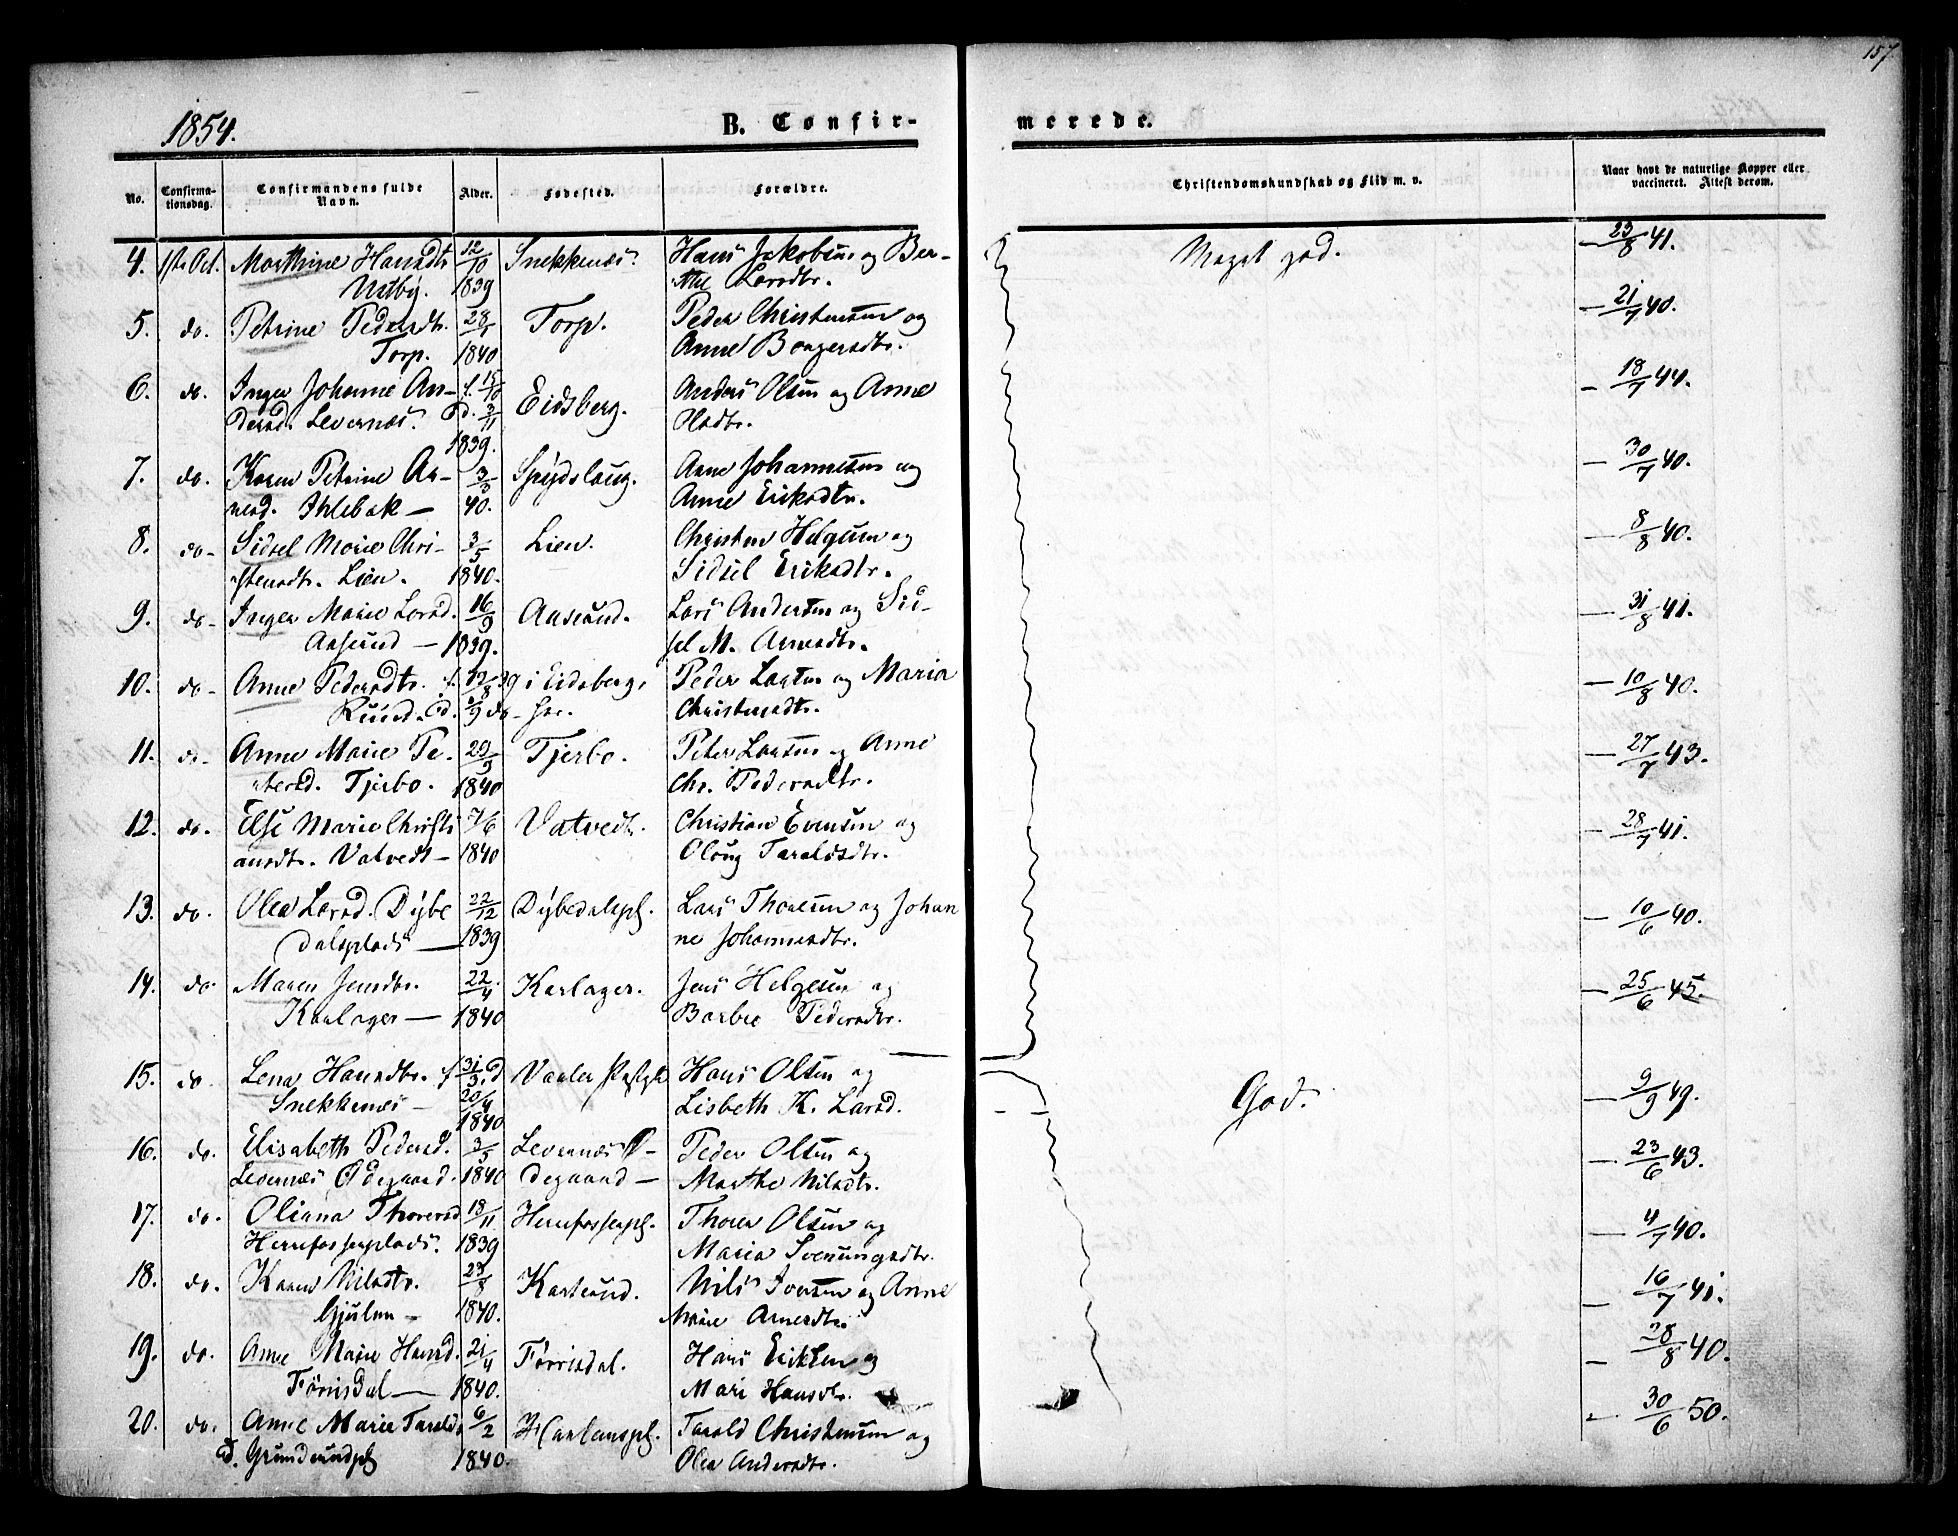 157
1854.
B. Confir-
merede.
No.
Confirma-
tionsdag.
Confirmandens fulde
Navn.
Alder.
Fødested.
Forældre.
Christendomskundskab og Flid m. v.
Naar havt de naturlige Kopper eller
vaccineret. Attest derom.
4. 1ste Oct. Marthine Hansdtr 12/10 Snekkenæs. Hans Jakobsen og Ber- Meget god. — 23/8 41.
Ustby. 1839 the Larsdtr.
5. do. Petrine Pedersdtr. 28/1 Torp. Peder Christensen og — 21/7 40.
Torp. 1840 Anne Borgersdtr.
6. do. Inger Johanne An- f. 15/10 Eidsberg. Anders Olsen og Anne — 18/7 44.
dersd. Levernæs. d. 3/11 Olsdtr.
1839.
7. do. Karen Petrine Ar- 3/3 Spydslaug. Arne Johannesen og — 30/7 40.
nesd. Ihlebak — 40. Anne Eriksdtr.
8. do- Sidsel Marie Chri- 3/5 Lien. Christen Helgesen og — 8/8 40.
stensdtr. Lien. 1840. Sidsel Eriksdtr.
9. do- Inger Marie Larsd. 16/9 Aaserud. Lars Andersen og Sid- — 31/8 41.
Aaserud — 1839. sel M. Arnesdtr.
10. do- Anne Pedersdtr. f. 12/8 39 i Eidsberg. Peder Larsen og Maria — 10/8 40.
Ruud. d. 1/9 do- Christensdtr.
11. do- Anne Marie Pe- 29/9 Tjerbo. Peter Larsen og Anne — 27/7 43.
tersd. Tjerbo. 1840 Chr. Pedersdtr.
12. do. Else Marie Christi 7/6 Vatvedt. Christian Evensen og — 28/7 41.
ansdtr. Vatvedt — 1840 Oloug Taraldsdtr.
13. do. Olea Larsd. Dybe 22/12 Dybedalspl. Lars Thoresen og Johan — 10/6 40.
dalsplads — 1839 ne Johannesdtr.
14. do. Maren Jensdtr. 22/4 Karlager. Jens Helgesen og — 25/6 45.
Karlager — 1840 Barbro Pedersdtr.
15. do. Lena Hansdtr. f 31/3 d Vaaler Præstgd Hans Olsen og God. — 9/9 49.
Snekkenæs — 20/4 Lisbeth K. Larsd.
1840
16. do. Elisabeth Pedersd. 3/3 Levernæs Ø- Peder Olsen og — 23/6 43.
Levernæs Ødegaard. 1840 degaard — Marthe Nilsdtr.
17. do. Oliana Thoresd 18/11 Herrefosserpl. Thorer Olsen og — 4/7 40.
Herrefosserplads. 1839 Maria Svenungsdtr.
18. do. Karen Nilsdtr. 23/8 Karterud. Nils Iversen og Anne — 16/7 41.
Gjulem — 1840. Marie Arnesdtr.
19. do. Anne Marie Hansd. 21/4 Førrisdal. Hans Eriksen og — 28/8 40.
Førrisdal — 1840. Mari Hansdtr.
20. do. Anne Marie Taralds 6/2 Tarald Christensen og — 30/6 50.
d. Grimsrudpl 1840. Olea Andersdtr.